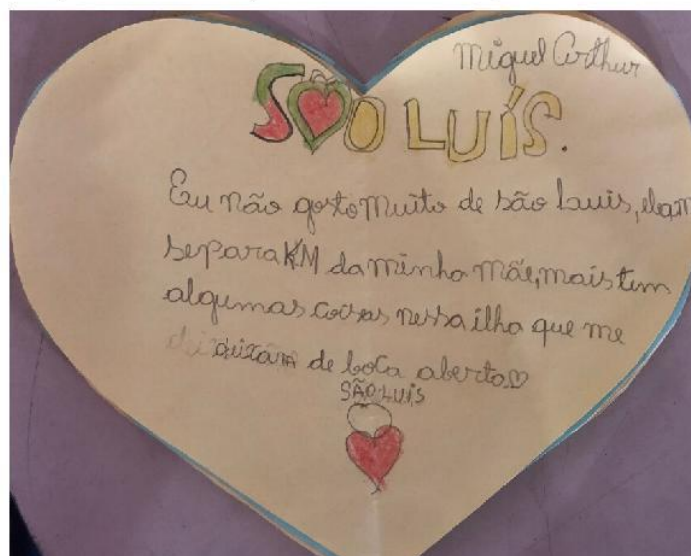 Miguel Arthur
SÃO LUÍS.
Eu não gosto muito de são Luis, ela m
separa KM da minha mãe, mais tem
algumas coisas nessa ilha que me
deixam de boca aberta♡
SÃO LUIS